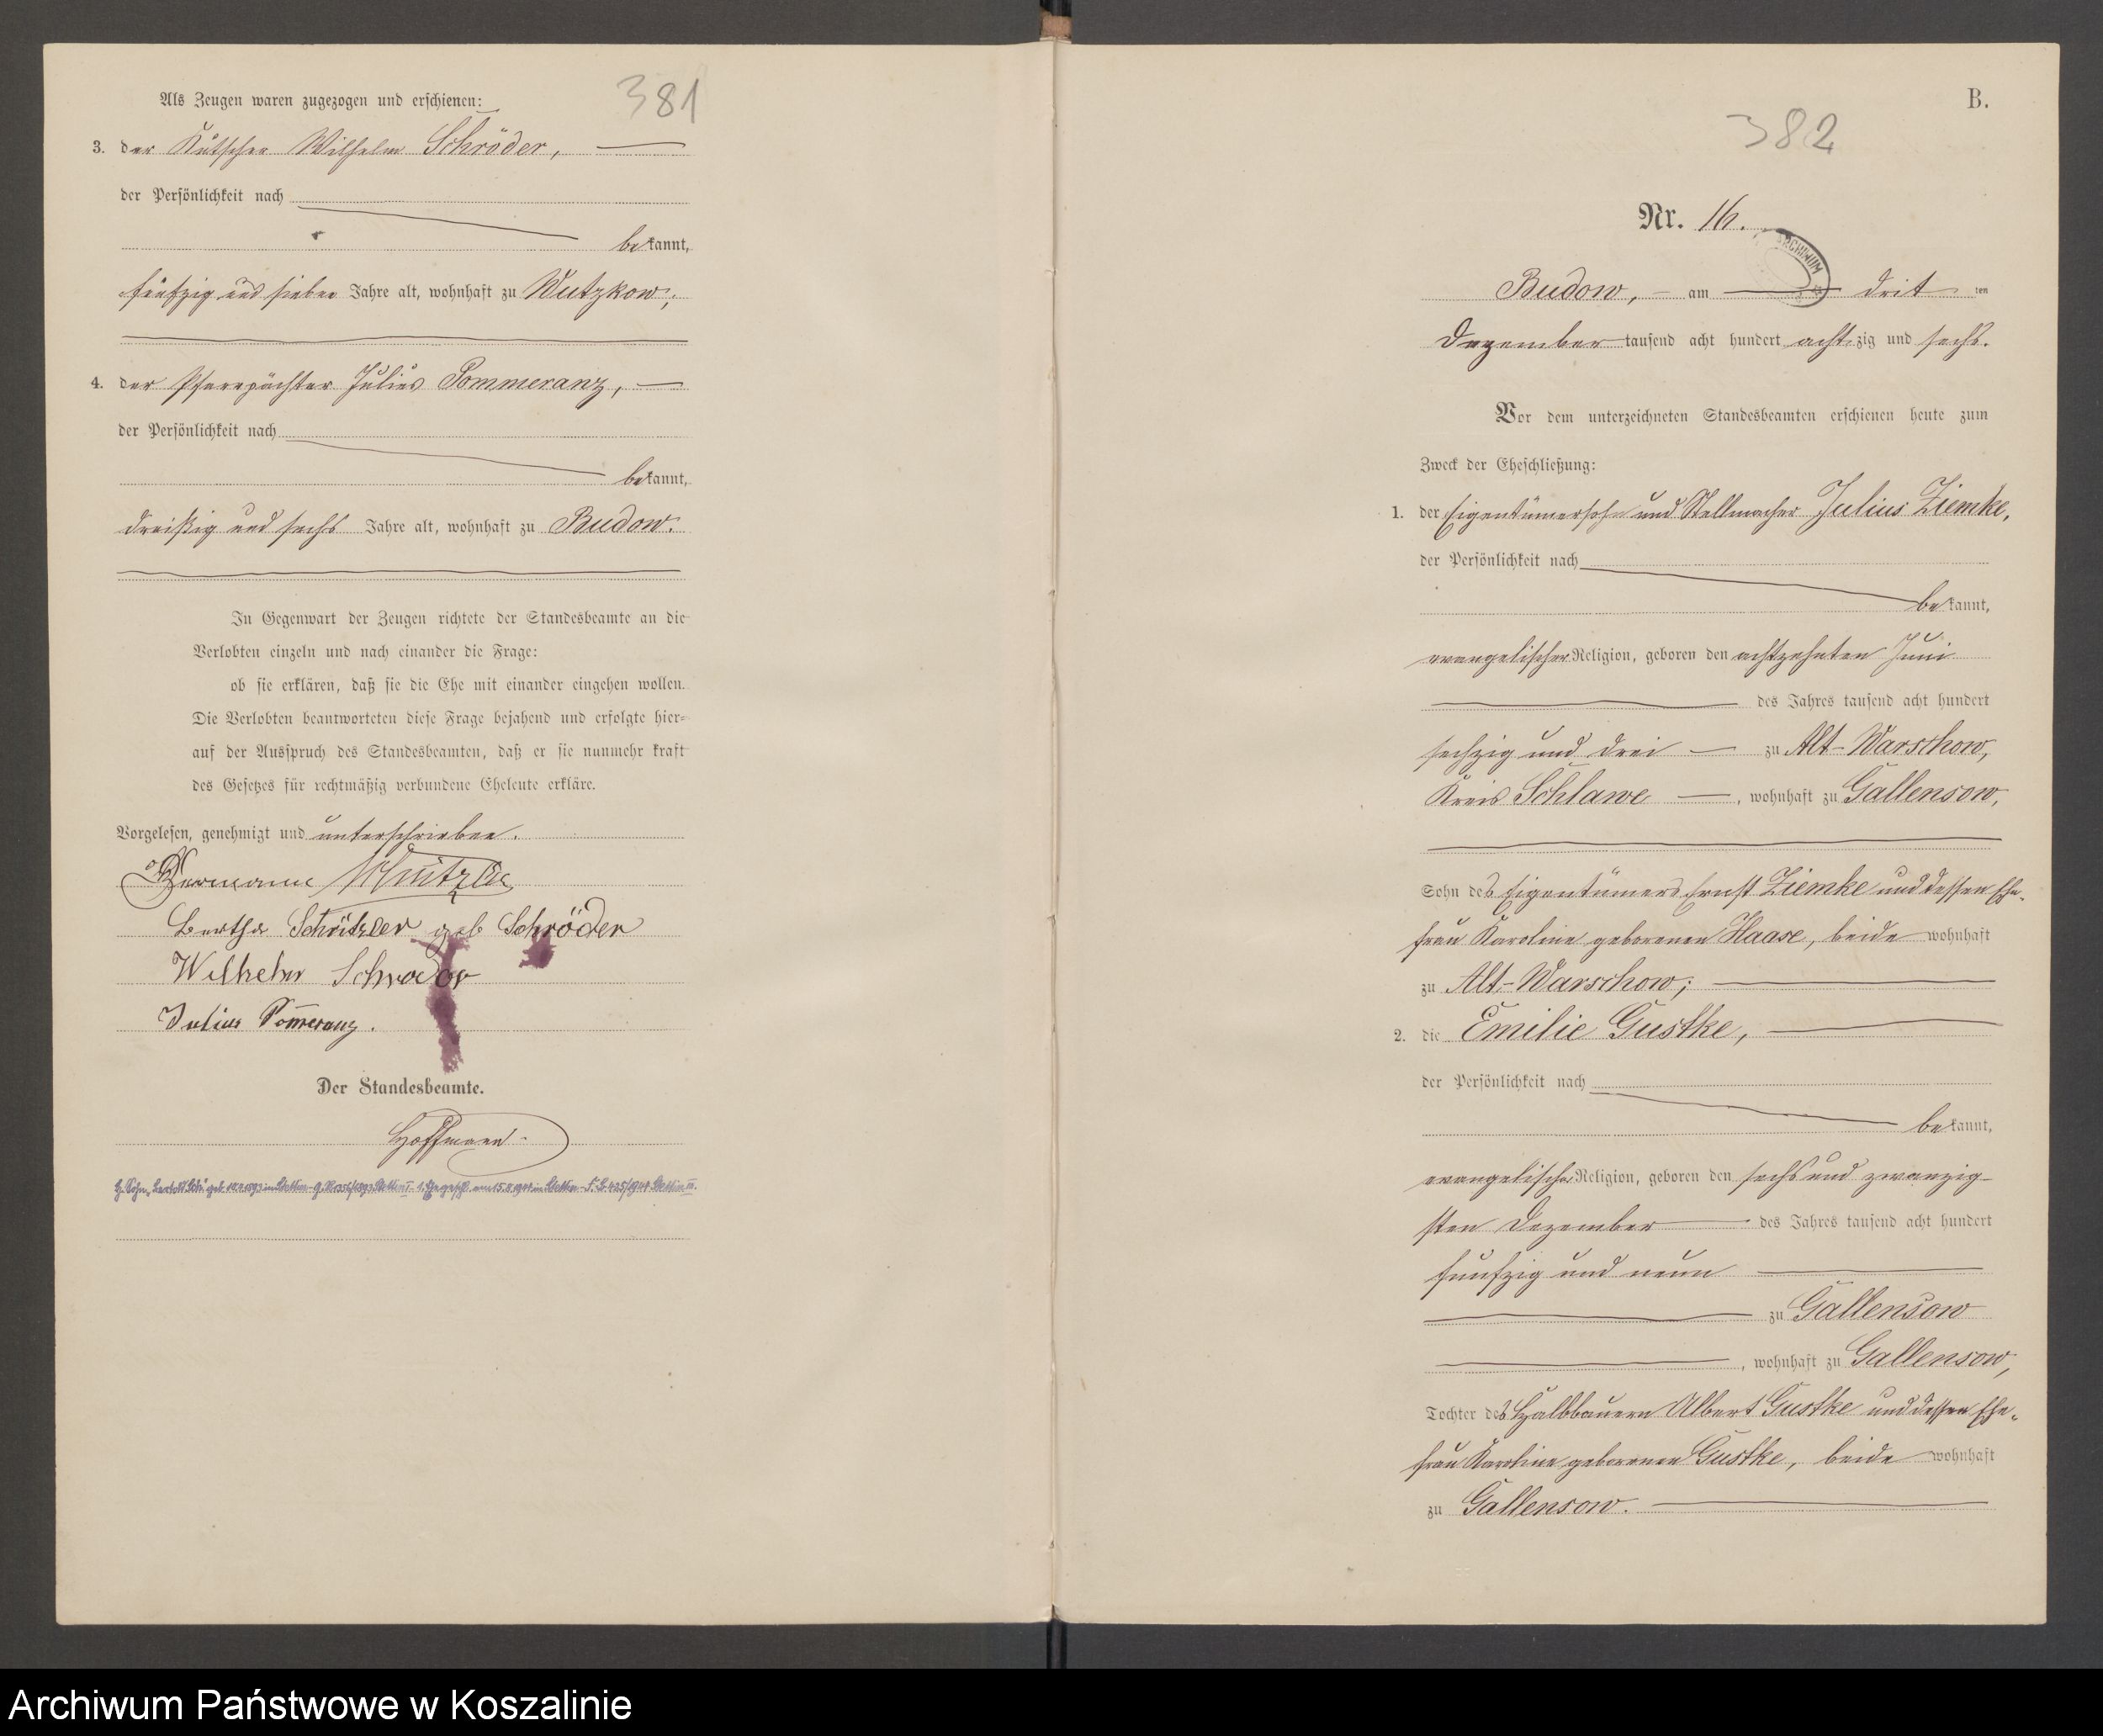 381
Als Zeugen waren zugezogen und erschienen:
3. der Kutscher Wilhelm Schröder,
der Persönlichkeit nach
bekannt,
fünfzig und sieben Jahre alt, wohnhaft zu Wutzkow;
4. der Pfarrpächter Julius Pommeranz,
der Persönlichkeit nach
bekannt,
dreißig und sechs Jahre alt, wohnhaft zu Budow.
In Gegenwart der Zeugen richtete der Standesbeamte an die
Verlobten einzeln und nach einander die Frage:
ob sie erklären, daß sie die Ehe mit einander eingehen wollen.
Die Verlobten beantworteten diese Frage bejahend und erfolgte hier=
auf der Ausspruch des Standesbeamten, daß er sie nunmehr kraft
des Gesetzes für rechtmäßig verbundene Eheleute erkläre.
Vorgelesen, genehmigt und unterschrieben.
Hermann
Bertha geb Schröder
Wilhelm Schroder
Julius Pom̅eranz.
Der Standesbeamte.
Hoffmann
B.
382
Nr. 16.
ARCHIWUM
Budow, am dritten
Dezember tausend acht hundert achtzig und sechs.
Vor dem unterzeichneten Standesbeamten erschienen heute zum
Zweck der Eheschließung:
1. der Eigentümersohn und Stellmacher Julius Ziemke,
der Persönlichkeit nach
bekannt,
evangelischer Religion, geboren den achtzehnten Juni
des Jahres tausend acht hundert
sechzig und drei zu Alt-Warschow,
Kreis Schlawe, wohnhaft zu Gallensow,
Sohn des Eigentümers Ernst Ziemke und dessen Ehe-
frau Karoline geborenen Haase, beide wohnhaft
zu Alt-Warschow;
2. die Emilie Gustke,
der Persönlichkeit nach
bekannt,
evangelischer Religion, geboren den sechs und zwanzig-
sten Dezember des Jahres tausend acht hundert
fünfzig und neun
zu Gallensow
, wohnhaft zu Gallensow,
Tochter des Halbbauern Albert Gustke und dessen Ehe-
frau Karoline geborenen Gustke, beide wohnhaft
zu Gallensow.
Archiwum Państwowe w Koszalinie